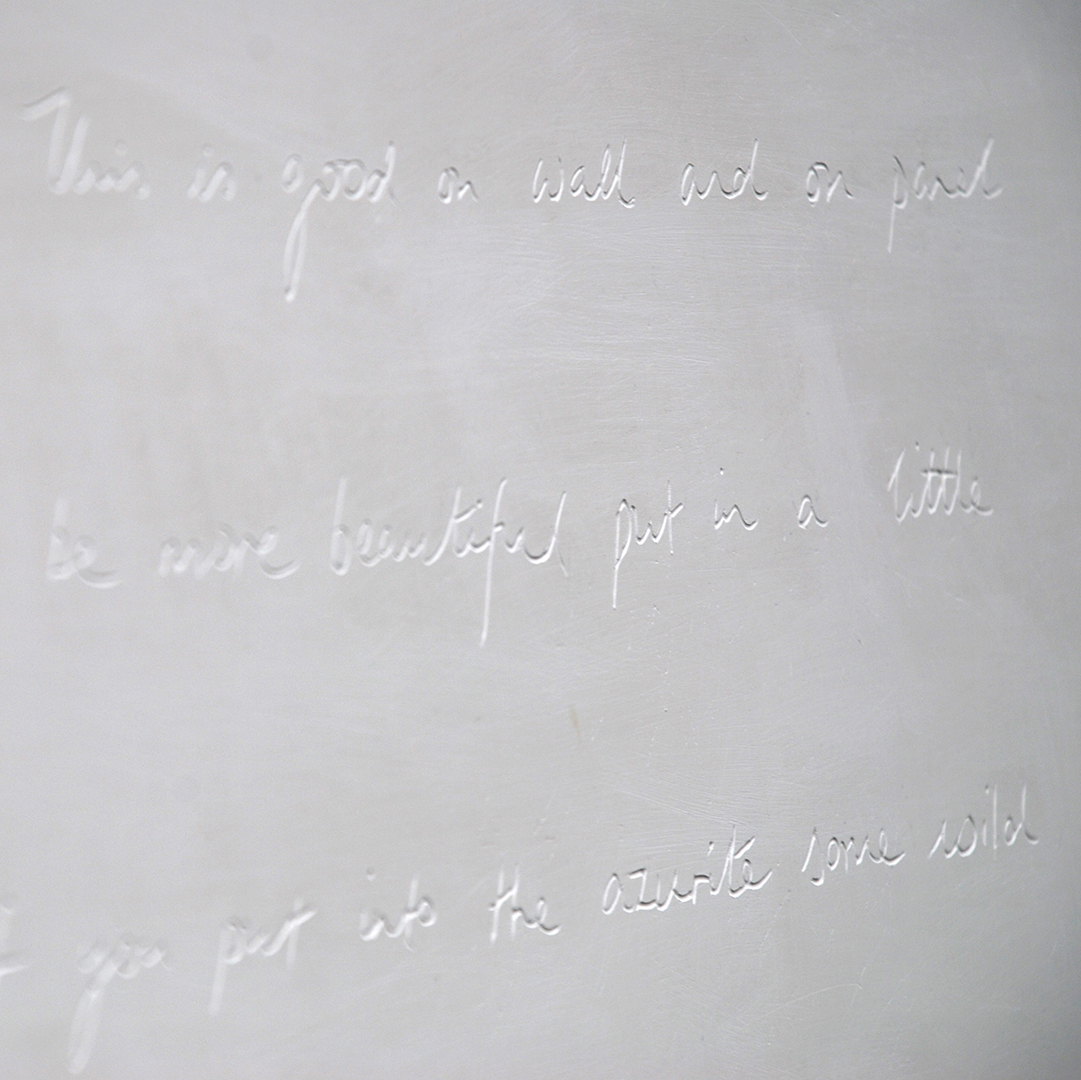 This is good on wall and on panel
be more beautiful, put in a little
you put into the azurite some wild